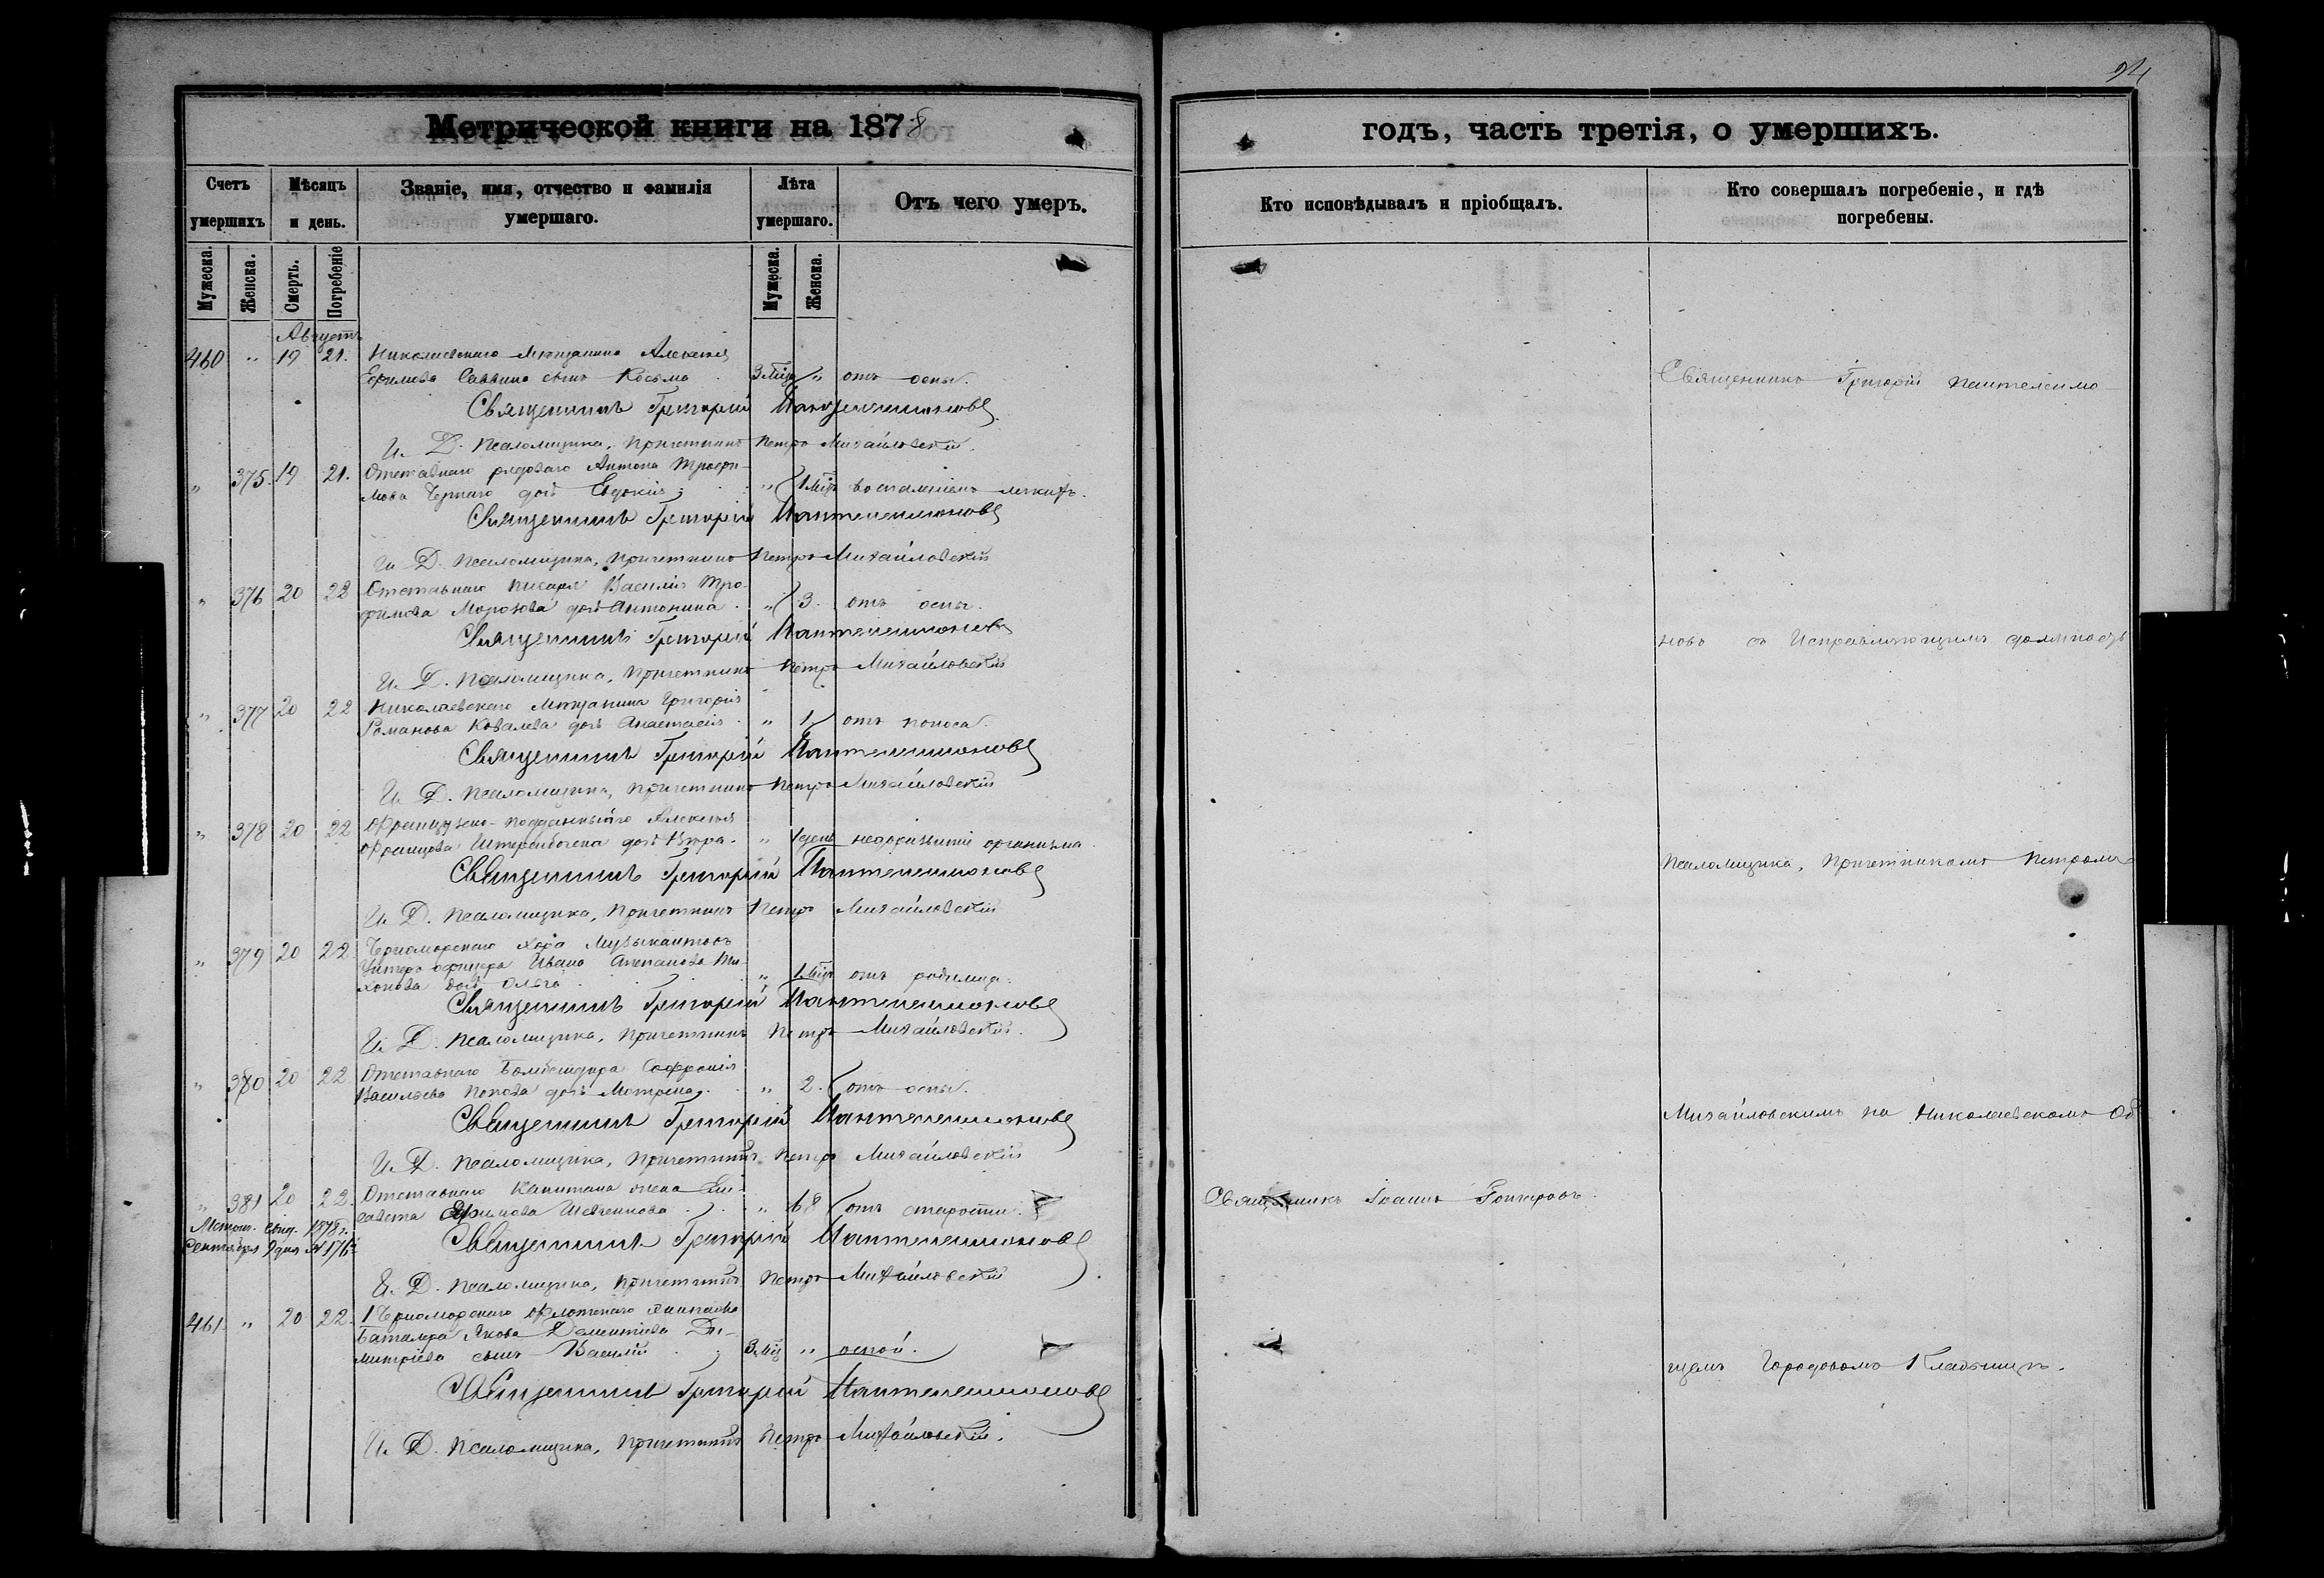 94
Метрической книги на 1878
годъ, часть третія, о умершихъ.
Счетъ умершихъ
Мѣсяцъ и день.
Званіе, имя, отчество и фамилія умершаго.
Лѣта умершаго.
Отъ чего умеръ.
Кто исповѣдывалъ и пріобщалъ.
Кто совершалъ погребеніе, и гдѣ погребены.
Мужеска.
Женска.
Смерть.
Погребеніе
Мужеска.
Женска.
Августъ
460 " 19 21. Николаевскаго Мѣщанина Алексѣя
Ефимова Саввина сынъ Косьма 3 мѣц " отъ оспы.
Священникъ Григорій Пантелеимоновъ
И. Д. Псаломщика, Причетникъ Петръ Михайловскій.
" 375. 19 21. Отставнаго рядоваго Антона Трофи-
мова Чернаго дочь Евдокія; " 1 мѣц воспаленіемъ легкихъ.
Священникъ Григорій Пантелеимоновъ
И. Д. Псаломщика, Причетникъ Петръ Михайловскій
" 376 20 22 Отставнаго писаря Василія Тро-
фимова Морозова дочь Антонина. " 3. отъ оспы.
Священникъ Григорій Пантелеимоновъ
И. Д. Псаломщика, Причетникъ Петръ Михайловскій
" 377 20 22 Николаевскаго Мѣщанина Григорія
Романова Ковалева дочь Анастасія. " 1 отъ поноса.
Священникъ Григорій Пантелеимоновъ
И. Д. Псаломщика, Причетникъ Петръ Михайловскій
" 378 20 22 Французско-подданнаго Алексѣя
Францова дочь Вѣра. " 1 день недоразвитіе организма.
Священникъ Григорій Пантелеимоновъ
И. Д. Псаломщика, Причетникъ Петръ Михайловскій
" 379 20 22. Черноморскаго хора Музыкантовъ
Унтеръ офицера Ивана Степанова Ти-
хонова дочь Ольга. " 1 мѣц отъ родимца.
Священникъ Григорій Пантелеимоновъ
И. Д. Псаломщика, Причетникъ Петръ Михайловскій.
" 380 20 22 Отставнаго Бомбардира Софронія
Васильева Попова дочь Матрона. " 2. отъ оспы.
Священникъ Григорій Пантелеимоновъ
И. Д. Псаломщика, Причетникъ Петръ Михайловскій
" 381 20 22. Отставнаго Капитана жена Ели-
савета Ефимова Шевченкова. " 68 отъ старости.
Метрич. свид. 1878 г.
Сентября 9 дня № 176
Священникъ Григорій Пантелеимоновъ
И. Д. Псаломщика, Причетникъ Петръ Михайловскій
461. " 20 22. 1 Черноморскаго Флотскаго экипажа
Баталера Якова Дементіева Ди-
митріева сынъ Василій; 3 мѣц " оспой.
Священникъ Григорій Пантелеимоновъ
И. Д. Псаломщика, Причетникъ Петръ Михайловскій.
Священникъ Іоаннъ Гончаровъ.
Священникъ Григорій Пантелеимо-
новъ съ Исправляющимъ должность
Псаломщика, Причетникомъ Петромъ
Михайловскимъ на Николаевскомъ Об-
щемъ Городовомъ Кладбищѣ.